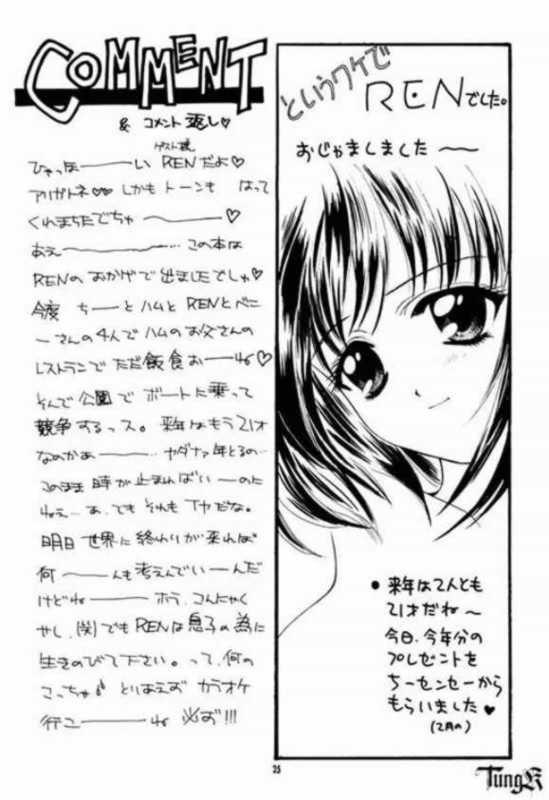 COMMENT
& コメント返し♡
ゲスト様
ひゃっほーーい RENだよ♡
アリガトネ♡♡ しかもトーンも はって
くれまちたでちゃ ～♡
あぇーーー… この本は
RENの おかげで出ましたでしゅ♡
今度 ちーとハムと RENとべに
ーさんの4人でハムのお父さんの
レストランで ただ飯食おーね♡
そんで公園で ボートに乗って
競争するっス。来年はもう21才
なのかぁーー… ヤダナァ年とるの…
このまま 時が止まればいーのに
ねぇ…あ、でも それもイヤだな。
明日 世界に 終わりが来れば
何ーーんも考えんでいーんだ
けどねーー ホラ、コンにゃく
やし、(関)でもRENは息子の為に
生きのびて下さい。って、何の
こっちゃ♪ とりあえず カラオケ
行こーーーね 必ず!!!
というワケで
RENでした。
おじゃましました ～
• 来年は2人とも
21才だね～
今日、今年分の
プレゼントを
ちーセンセーから
もらいました♥
(2月の)
25
TungK